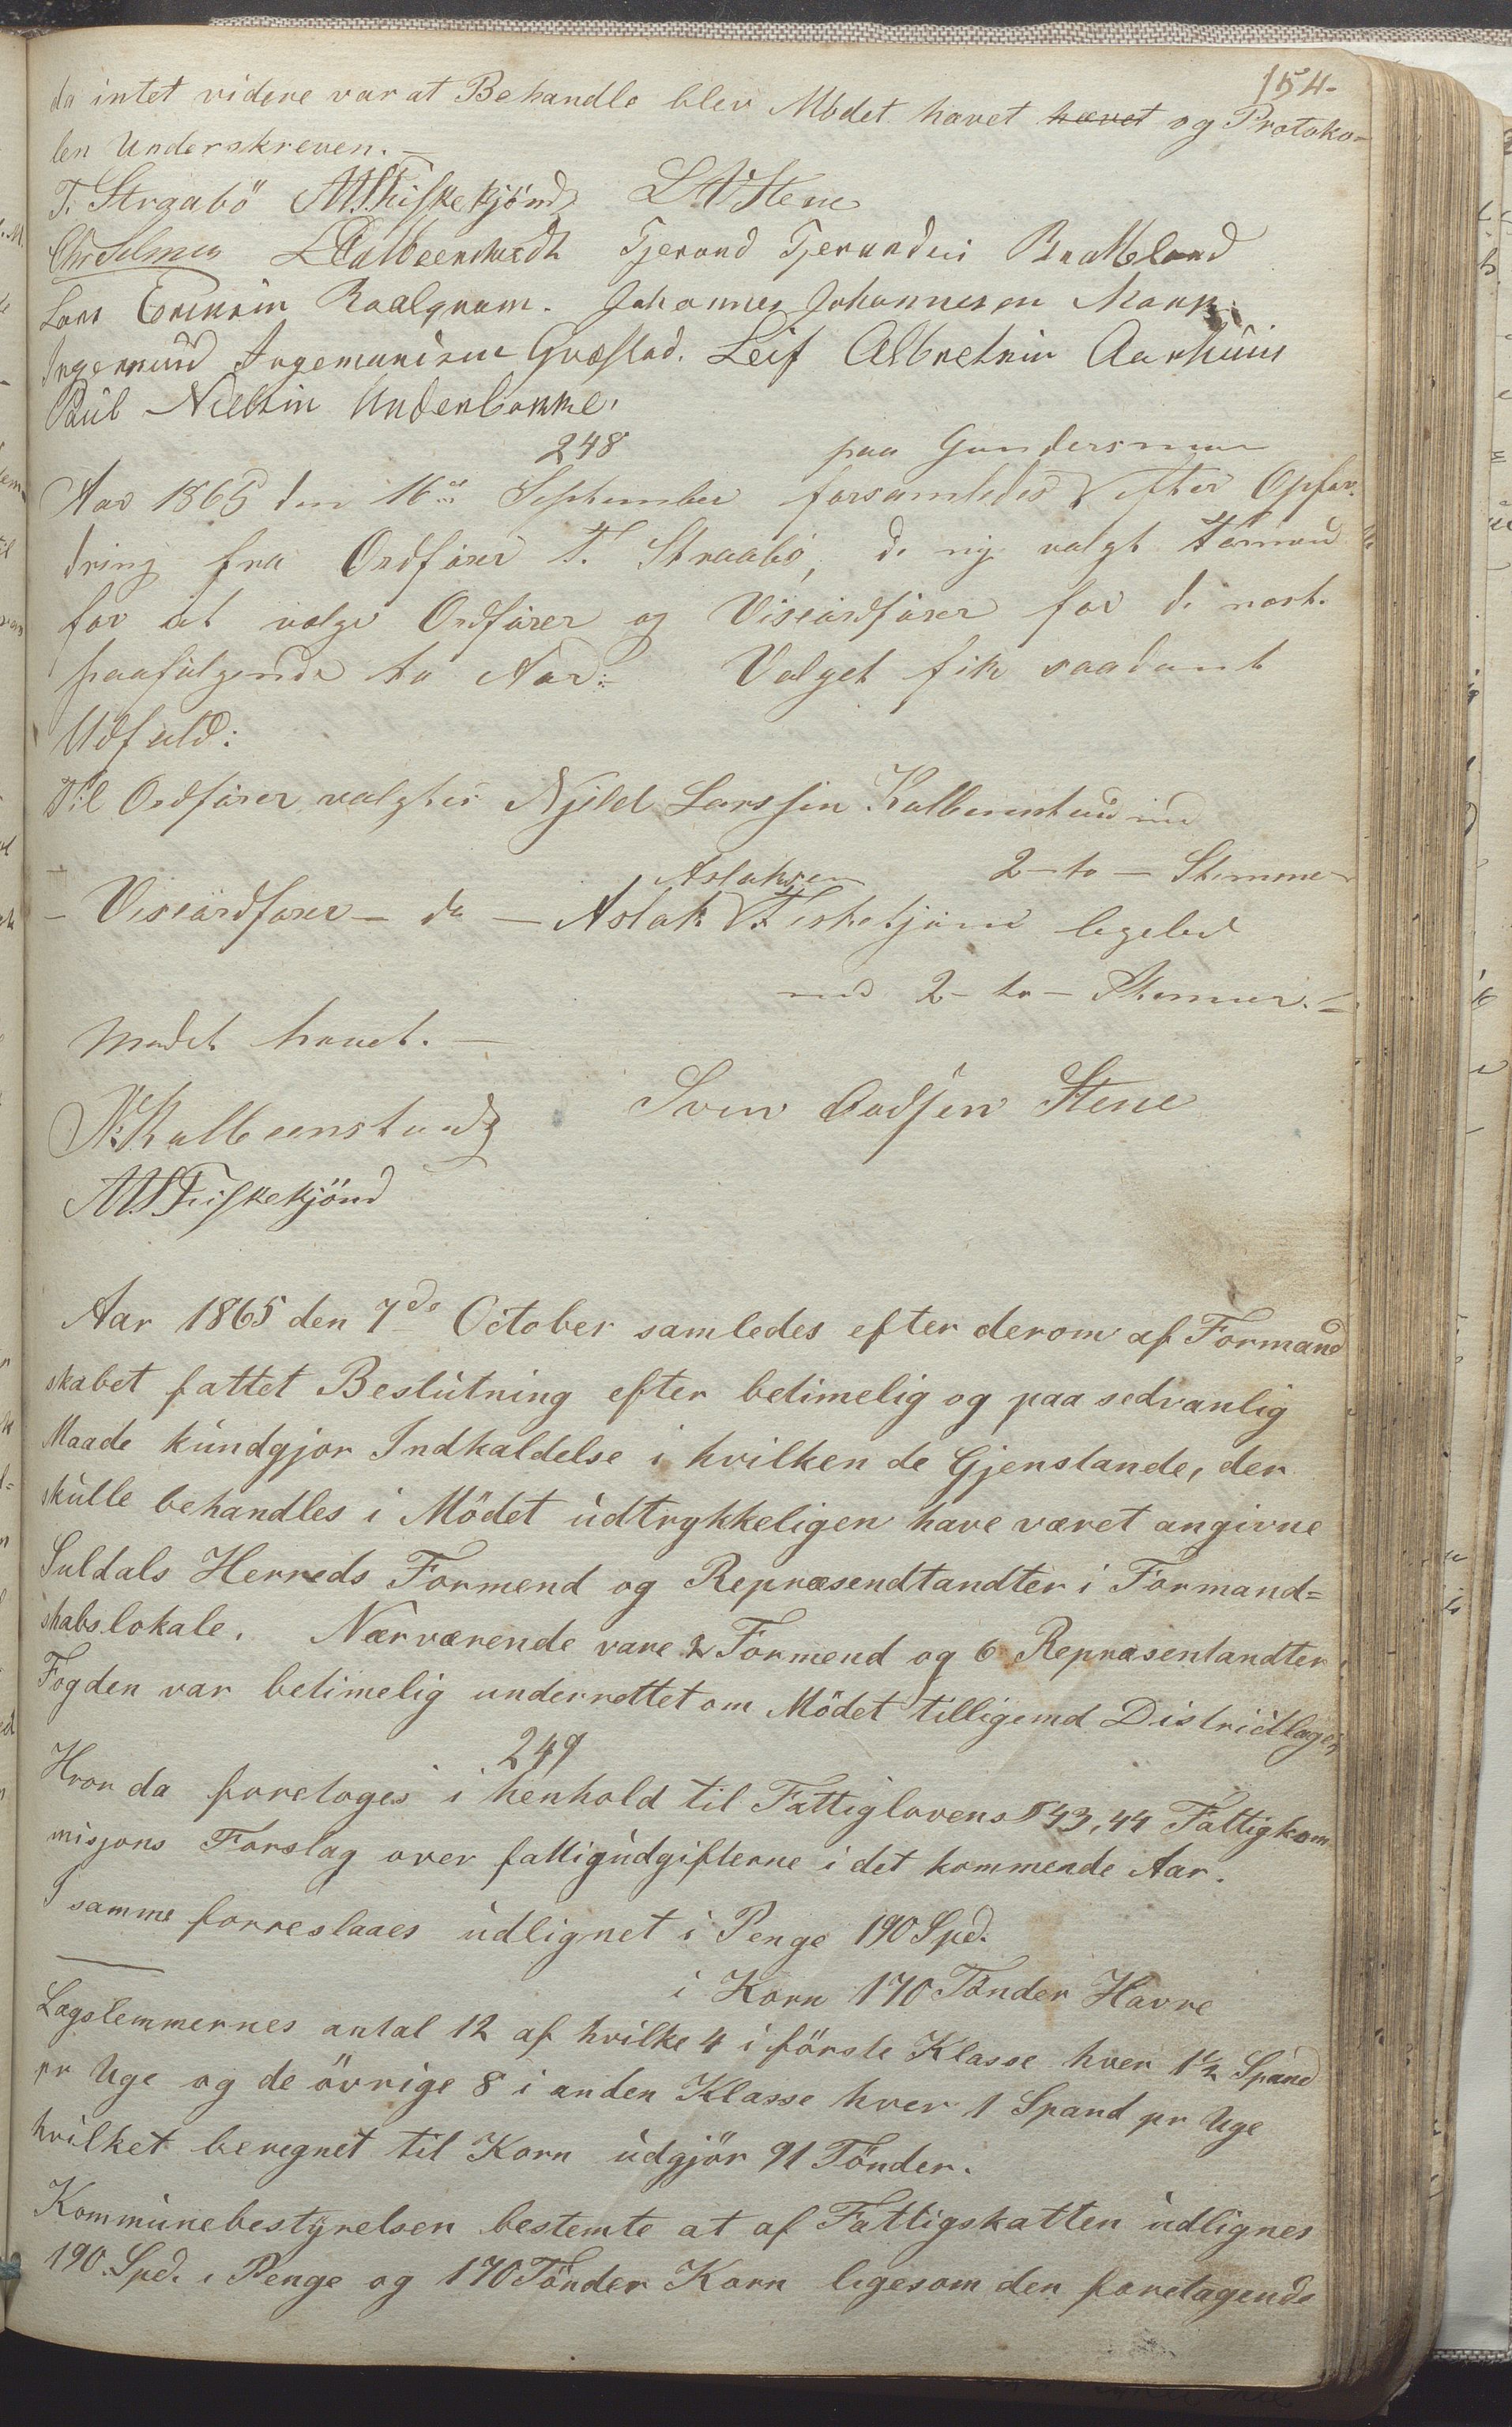 154-
da intet videre var at Behandle blev Mödet hævet hævet og Protoko-
len Underskreven.-
T. Straabö AAFiskekjönd LNStene
Chr Selmer LKalbeenstvedt Tjerand Tjerandsen Bratteland
Lars Eriksen Roalqvam. Johannes Johannesen Maan.
Ingemund Ingemundsen Gvæstad. Leif Albretsen Aarhuus
Paul Nielsen Underbakke.
248 paa Gundersmoen
Aar 1865 den 16de September forsamledes efter Opfor-
dring fra Ordförer T. Straabö, de ny valgt Formænd
for at vælge Ordförer og Viseordförer for de næst-
paafølgende to Aar:- Valget fik saadant
Udfald:
Til Ordförer valgtes Njeld Larssen Kalbenstved med
2-to- Stemmer
- Viseordförer- do - Aslak Aslaksen Fiskekjönn ligeled
med 2-to- Stemmer.-
Mødet hævet.-
N. Kalbeenstvedt Sven Oadsen Stene
AAFiskekjönd
Aar 1865 den 7de October samledes efter derom af Formand
skabet fattet Beslutning efter betimelig og paa sedvanlig
Maade kundgjor Indkaldelse i hvilken de Gjenstande, der
skulle behandles i Mödet udtrykkeligen have været angivne
Suldals Herreds Formend og Repræsendtandter i Formand=
skabslokale. Nærværende vare 2 Formend og 6 Repræsentandter
Fogden var betimelig underrettet om Mödet tilligemd Distriktlægen
249
Hvor da foretoges i henhold til Fattiglovens § 43, 44 Fattigkom
misjons Forslag over fattigudgifterne i det kommende Aar.
I samme forreslaaes udlignet i Penge 190 Spd.
i Korn 170 Tönder Havre
Lægslemmernes antal 12 af hvilke 4 i förste Klasse hver 1½ Spand
pr Uge og de övrige 8 i anden Klasse hver 1 Spand pr Uge
hvilket beregnet til Korn udgjör 91 Tönder.
Kommunebestyrelsen bestemte at af Fattigskatten udlignes
190 Spd. i Penge og 170 Tönder Korn ligesom den foretagende